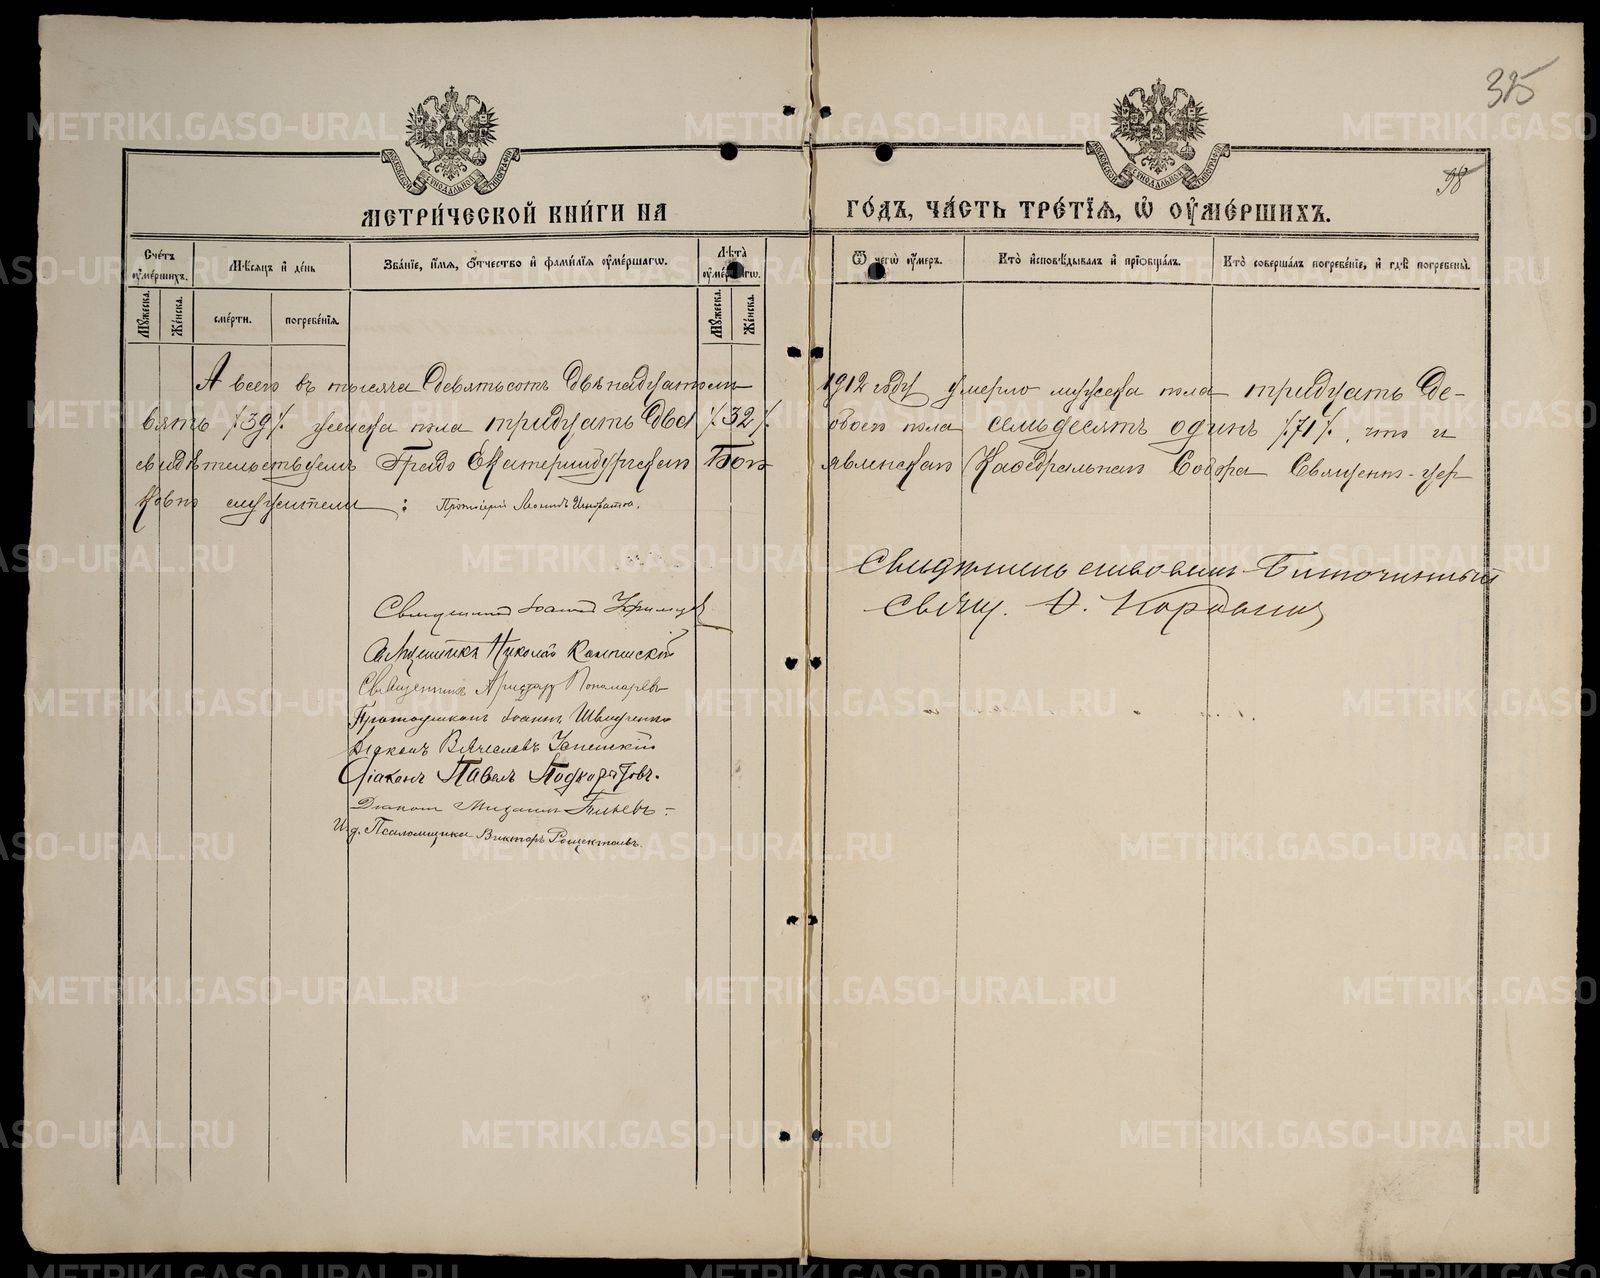 325
98
МЕТРИ́ЧЕСКОЙ КНИ́ГИ НА ГО́ДЪ, ЧА́СТЬ ТРЕ́ТЇѦ, Ѡ҆ ОУ҆МЕ́РШИХЪ.
Сче́тъ оу҆ме́ршихъ.
Мѣ́сяцъ и҆ де́нь
Зва́нїе, и҆́мя, ѻ҆́тчество и҆ фами́лїя оу҆ме́ршагѡ.
Лѣ́та оу҆ме́ршагѡ.
Ѿ чегѡ̀ оу҆́меръ.
Кто̀ и҆сповѣ́дывалъ и҆ прїѡбща́лъ.
Кто̀ соверша́лъ погребе́нїе, и҆ гдѣ̀ погребены̀.
Мꙋ́жеска.
Же́нска.
сме́рти.
погребе́нїя.
Мꙋ́жеска.
Же́нска.
А всего въ тысяча девятьсотъ двѣнадцатомъ 1912 году умерло мужеска пола тридцать де-
вять /39/. женска пола тридцать два /32/. обоего пола семьдесятъ одинъ /71/, что и
свидѣтельствуемъ Градо Екатеринбургскаго Бого явленскаго Каѳедральнаго Собора Священно-цер
ковно служители: Протоіерей Леонидъ Игноратовъ.
Свидѣтельствовалъ Благочинный
Свящ.
Священникъ Іоаннъ
Священникъ Николай
Священникъ Аристархъ Пономаревъ
Протодиаконъ Іоаннъ Швидченко
Діаконъ Вячеславъ Успенскій
Діаконъ Павелъ Подкорытовъ.
Діаконъ Михаилъ
И. д. Псаломщика Викторъ Рощектаевъ.
METRIKI.GASO-URAL.RU